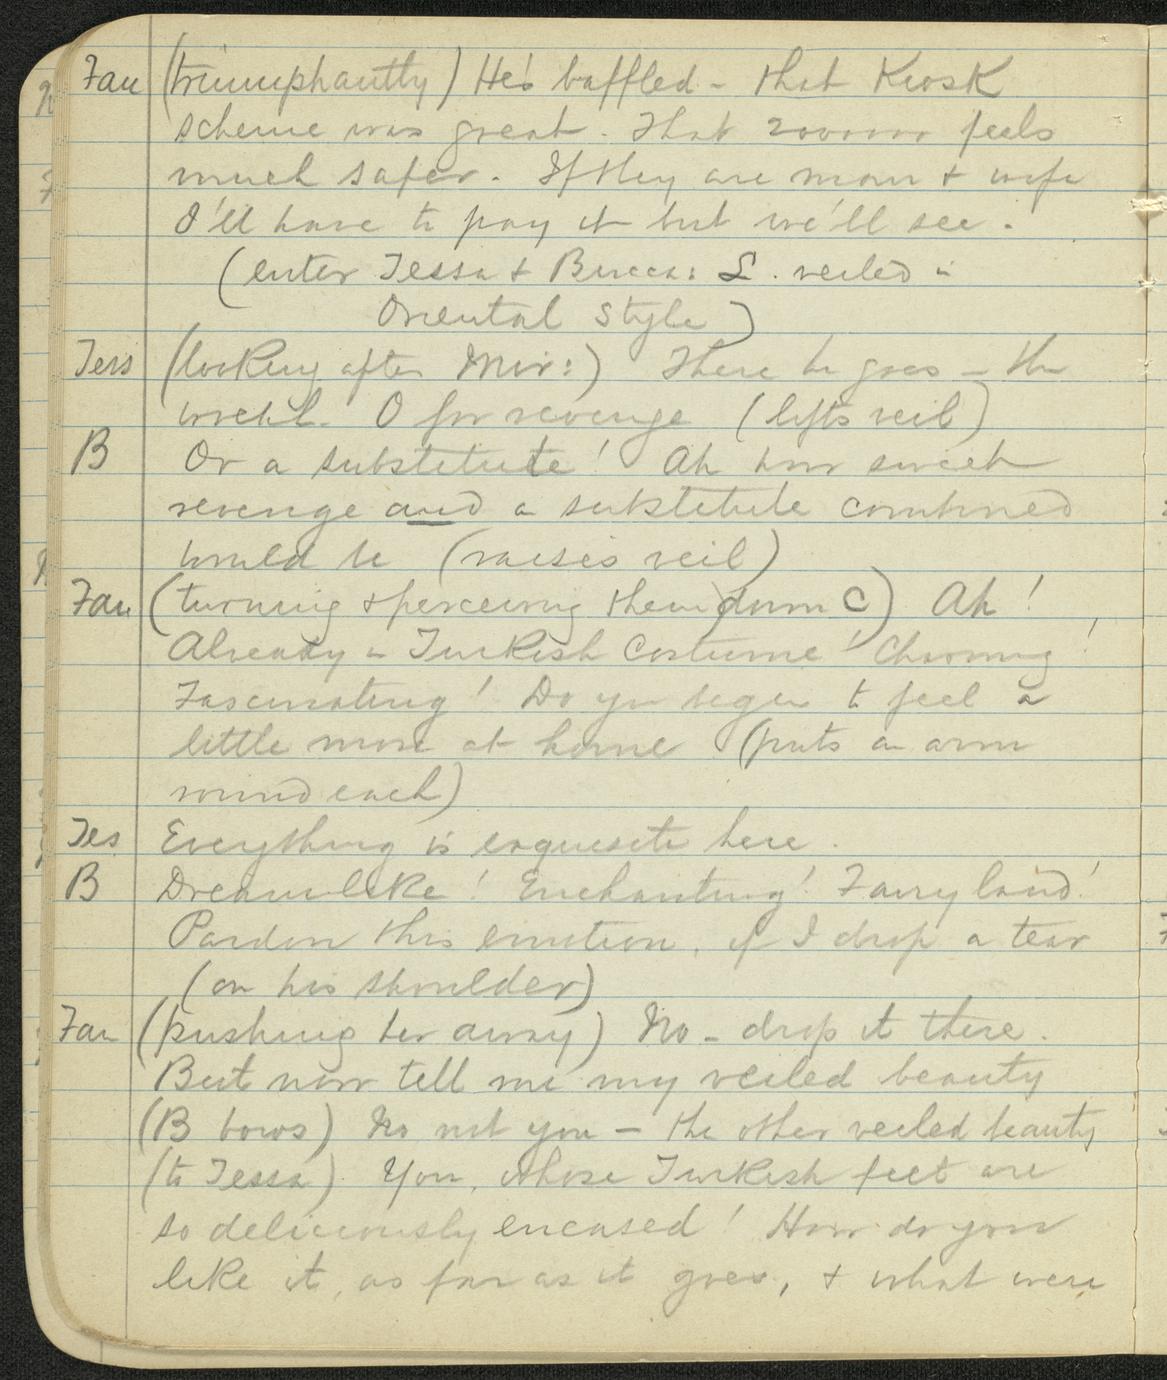 Fau (triumphantly) He's baffled - that Kiosk
scheme was great. That 2000000 feels
much safer. If they are man & wife
I'll have to pay it but we'll see.
(enter Tessa & Bucca: L. veiled in
Oriental style)
Tess (looking after Mir:) There he goes - the
wretch. O for revenge (lifts veil)
B Or a substitute! Ah how sweet
revenge and a substitute combined
would be (raises veil)
Fau (turning & perceiving them down C) Ah!
Already in Turkish Costume! Charming!
Fascinating! Do you begin to feel a
little more at home (puts an arm
round each)
Tes Everything is exquisite here.
B Dreamlike! Enchanting! Fairy land!
Pardon this emotion, if I drop a tear
(on his shoulder)
Fau (pushing her away) No - drop it there.
But now tell me my veiled beauty
(B bows) No not you - the other veiled beauty
(to Tessa) You, whose Turkish feet are
so deliciously encased! How do you
like it, as far as it goes, & what were